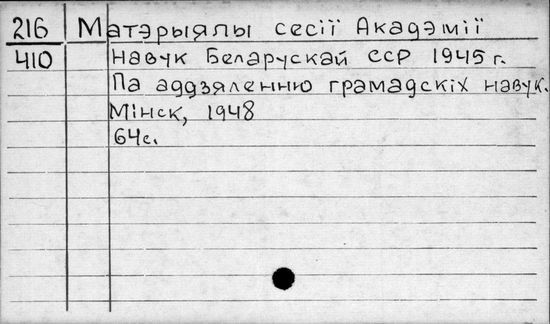 216 Матэрыялы сесіі Акадэміі
410 навук Беларускай ССР 1945 г.
Па аддзяленню грамадскіх навук.
Мінск, 1948
64с.